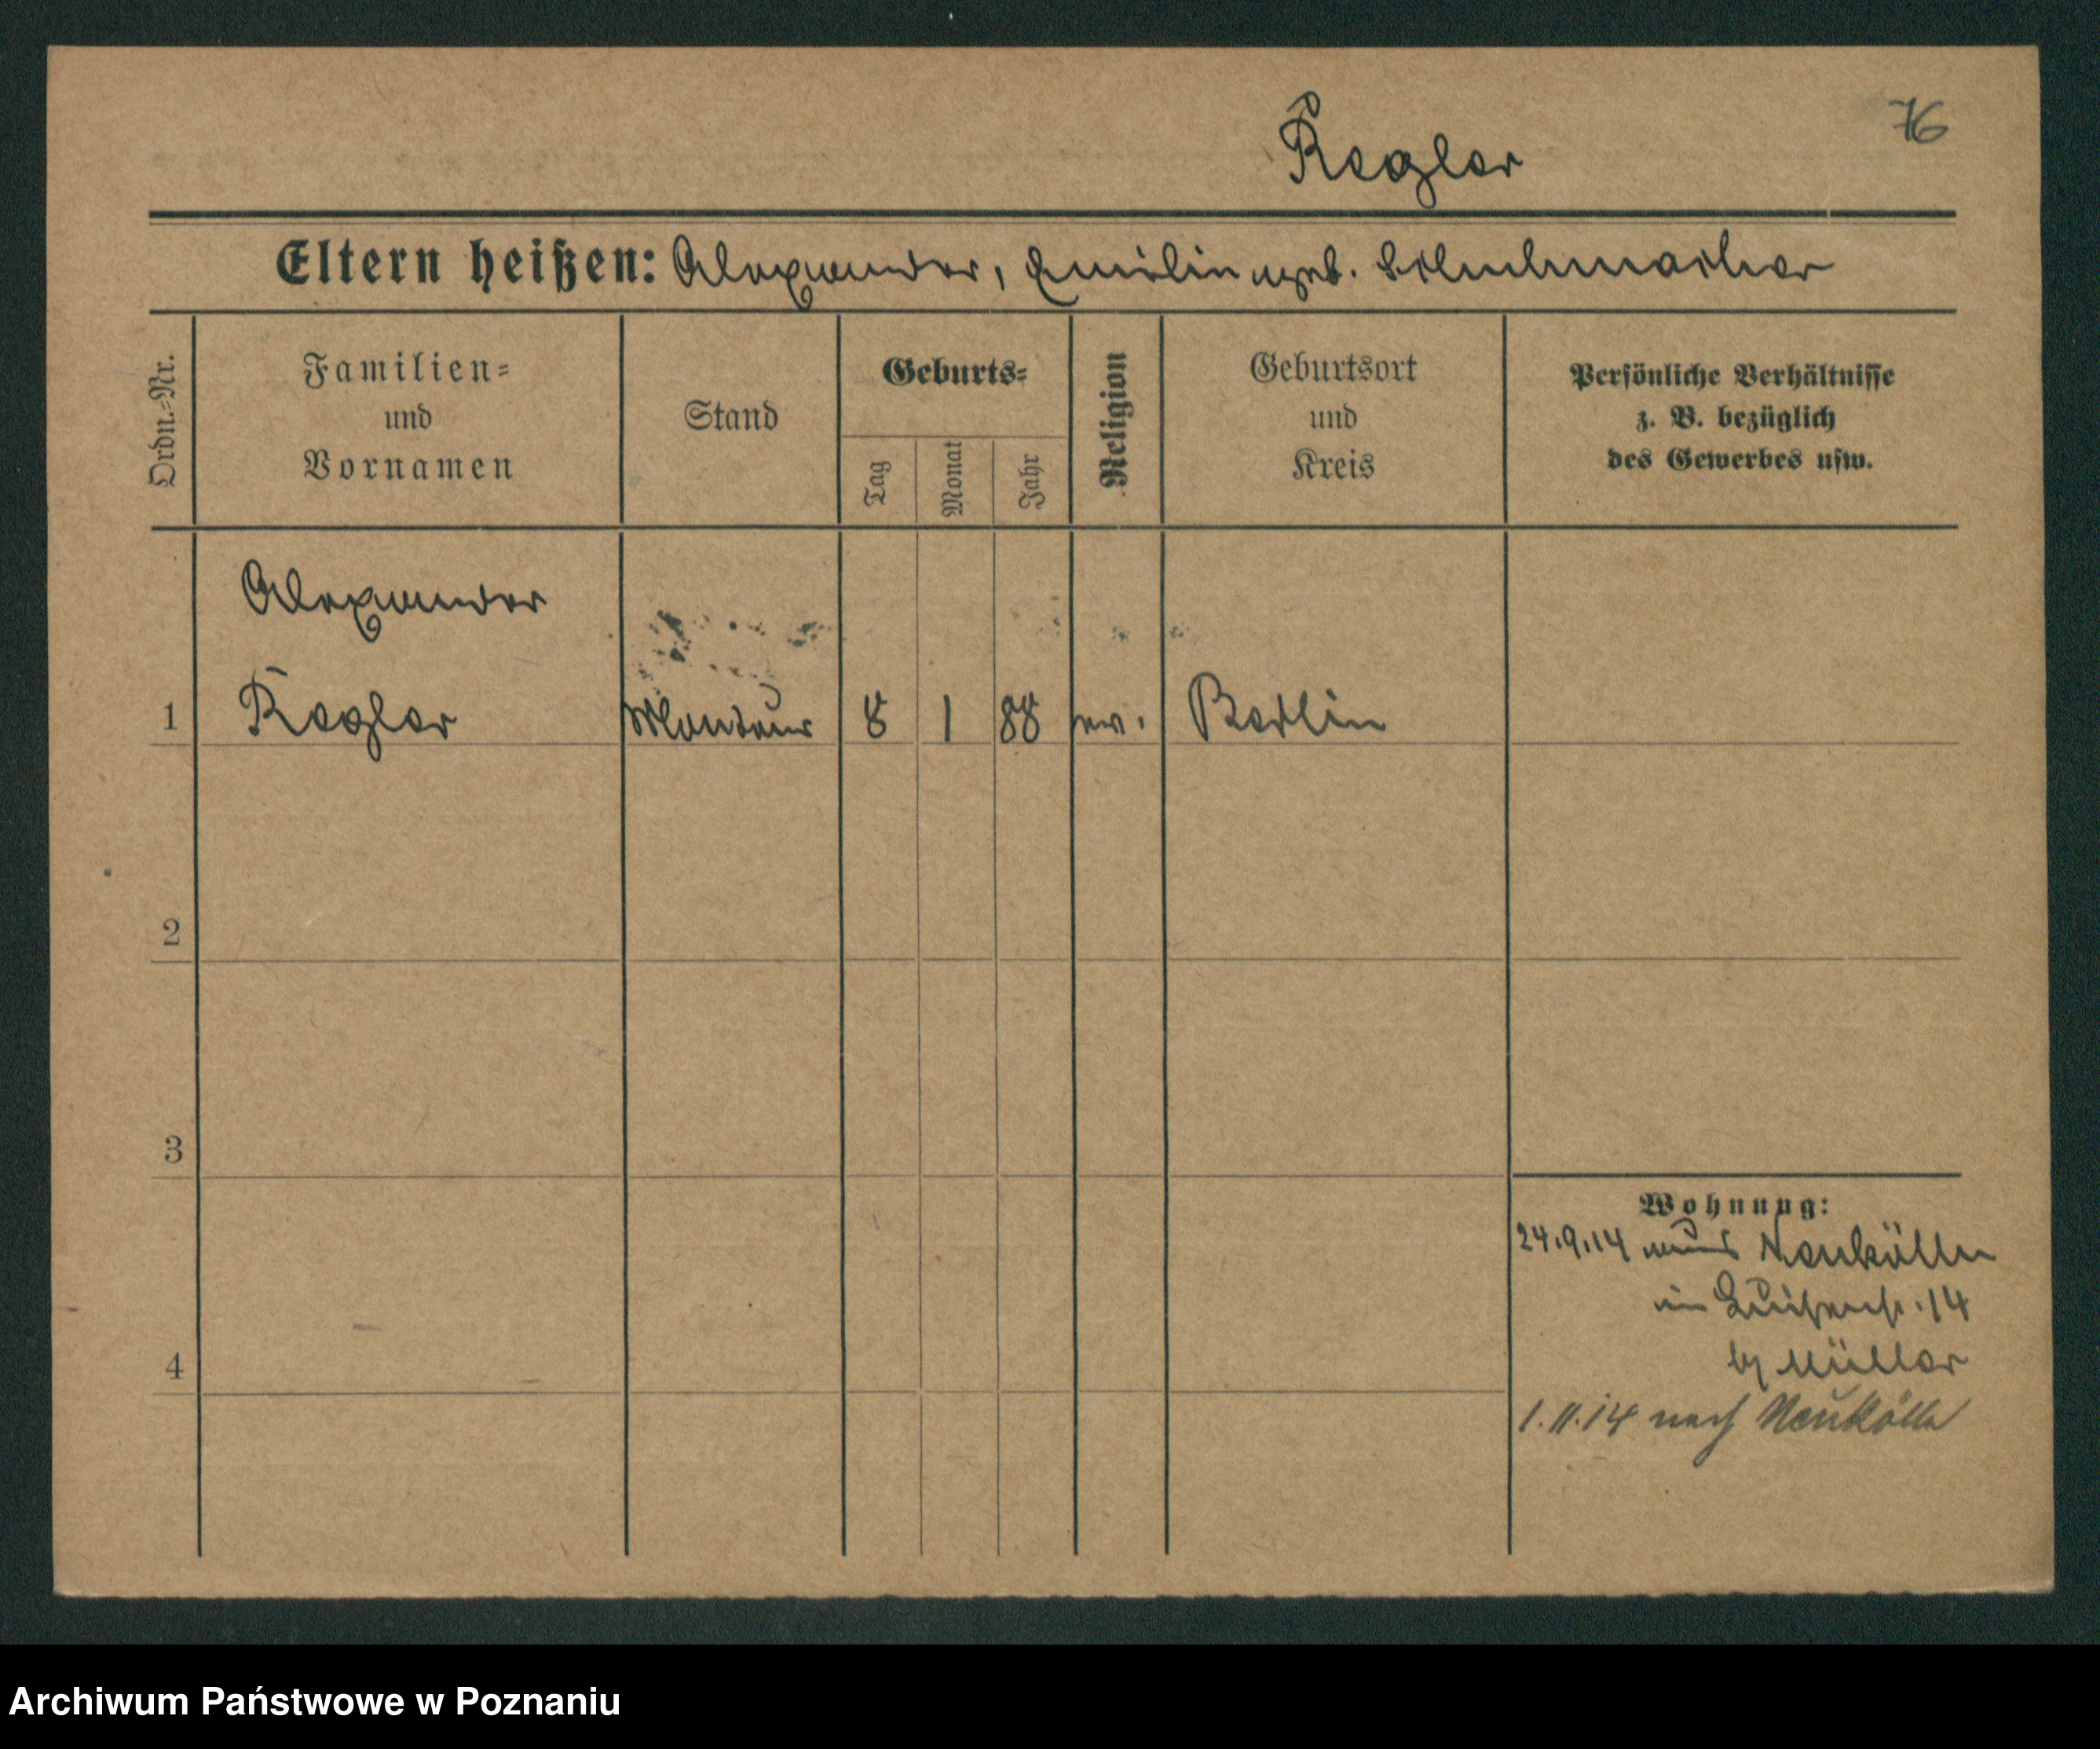 76
Kegler
Eltern heißen: Alexander, Emilie geb. Schuhmacher
Ordn.-Nr.
Familien-
und
Vornamen
Stand
Geburts-
Tag
Monat
Jahr
Religion
Geburtsort
und
Kreis
Persönliche Verhältnisse
z. B. bezüglich
des Gewerbes usw.
Alexander
1 Kegler Monteur 8 1 88 ev. Berlin
2
3
4
Wohnung:
24.9.14 aus Neukölln
in Luisenst. 14
b/ Müller
1.11.14 nach Neukölln
Archiwum Państwowe w Poznaniu